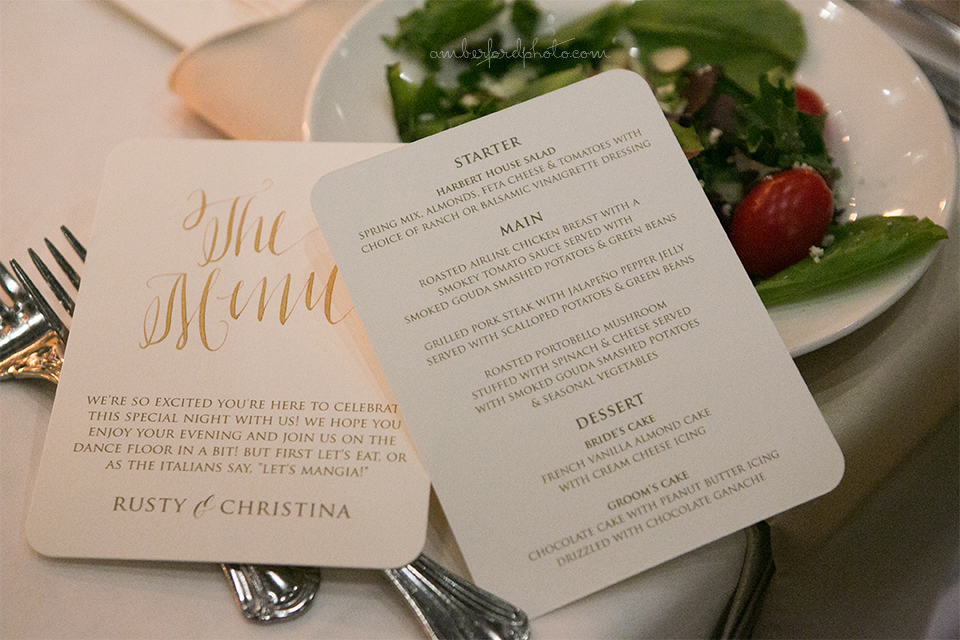 amberfordphoto.com
The
Menu
WE'RE SO EXCITED YOU'RE HERE TO CELEBRAT
THIS SPECIAL NIGHT WITH US! WE HOPE YOU
ENJOY YOUR EVENING AND JOIN US ON THE
DANCE FLOOR IN A BIT! BUT FIRST LET'S EAT, OR
AS THE ITALIANS SAY, "LET'S MANGIA!"
RUSTY & CHRISTINA
STARTER
HARBERT HOUSE SALAD
SPRING MIX, ALMONDS, FETA CHEESE & TOMATOES WITH
CHOICE OF RANCH OR BALSAMIC VINAIGRETTE DRESSING
MAIN
ROASTED AIRLINE CHICKEN BREAST WITH A
SMOKEY TOMATO SAUCE SERVED WITH
SMOKED GOUDA SMASHED POTATOES & GREEN BEANS
GRILLED PORK STEAK WITH JALAPEÑO PEPPER JELLY
SERVED WITH SCALLOPED POTATOES & GREEN BEANS
ROASTED PORTOBELLO MUSHROOM
STUFFED WITH SPINACH & CHEESE SERVED
WITH SMOKED GOUDA SMASHED POTATOES
& SEASONAL VEGETABLES
DESSERT
BRIDE'S CAKE
FRENCH VANILLA ALMOND CAKE
WITH CREAM CHEESE ICING
GROOM'S CAKE
CHOCOLATE CAKE WITH PEANUT BUTTER ICING
DRIZZLED WITH CHOCOLATE GANACHE